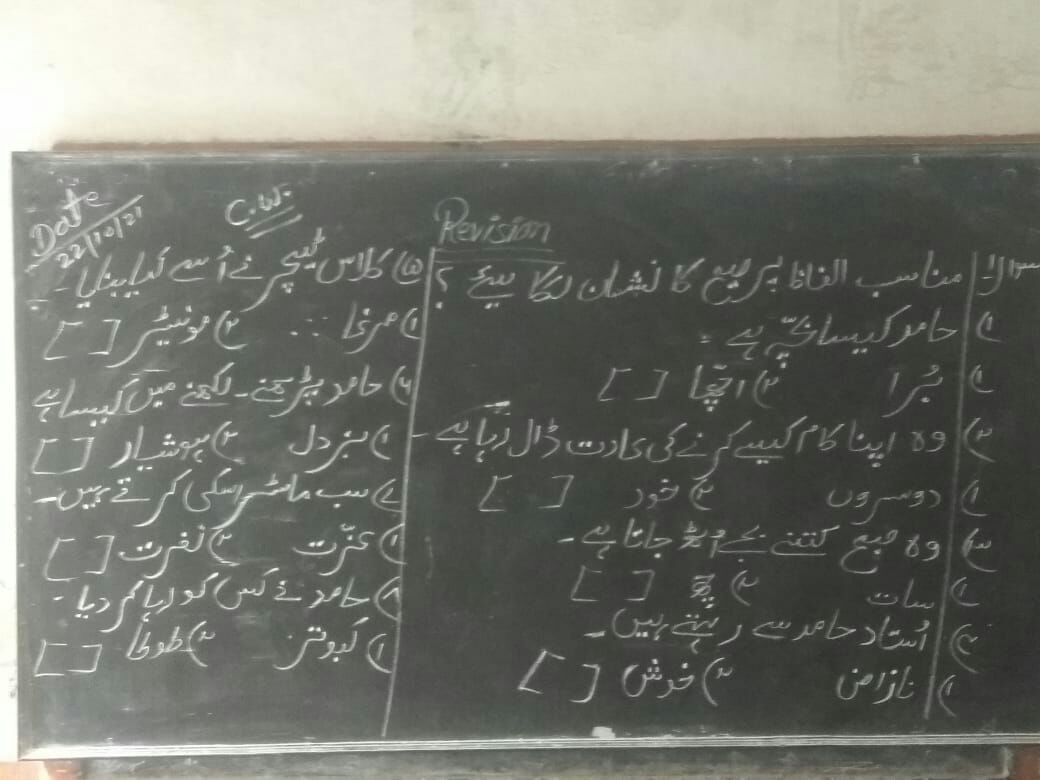 Date
22/10/21
C.W.
Revision
سوال ۱ مناسب الفاظ پر صحیح کا نشان لگا یئے ؟
۱) حامد کیسا بچّہ ہے -
۱) بُرا ۲) اچّھا [ ]
۲) وہ اپنا کام کیسے کرنے کی عادت ڈال رہا ہے -
۱) دوسروں ۲) خود [ ]
۳) وہ صبح کتنے بجے اُٹھ جاتا ہے -
۱) سات ۲) چھ [ ]
۴) اُستاد حامد سے رہتے ہیں -
۱) ناراض ۲) خوش [ ]
۵) کلاس ٹیچر نے اُسے کیا بنایا -
۱) مرغا ۲) مونیٹر [ ]
۶) حامد پڑھنے - لکھنے میں کیسا ہے
۱) بزدل ۲) ہوشیار [ ]
۷) سب ماسٹر اسکی کرتے ہیں -
۱) عزّت ۲) نفرت [ ]
۸) حامد نے کس کو رہا کر دیا -
۱) کبوتر ۲) طوطا [ ]